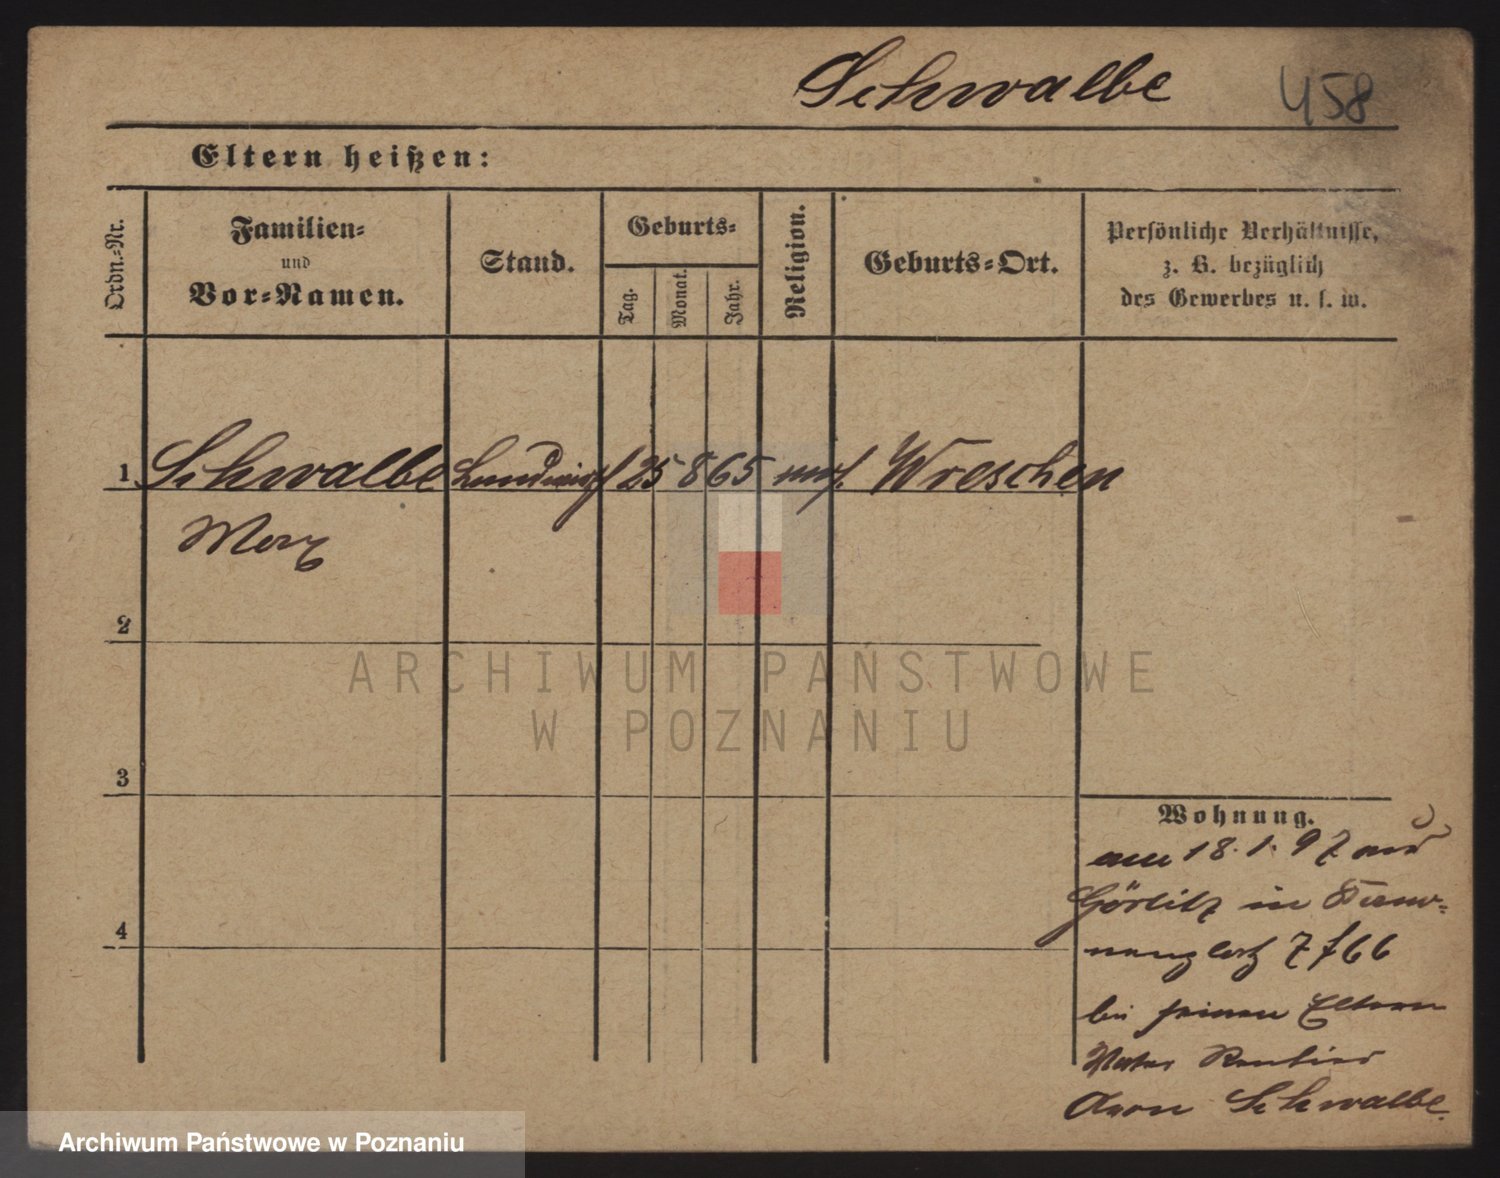 Schwalbe 458
Eltern heißen:
Ordn.-Nr.
Familien-
und
Vor-Namen.
Stand.
Geburts-
Tag.
Monat.
Jahr.
Religion.
Geburts-Ort.
Persönliche Verhältnisse,
z. B. bezüglich
des Gewerbes u. s. w.
1 Schwalbe Landwirth 25 8 65 mos. Wreschen
Max
2
ARCHIWUM PAŃSTWOWE
W POZNANIU
3
Wohnung.
am 18. 1. 97 aus
Görlitz in
4
7 f 66
bei seinen Eltern
Vater Rentier
Aron Schwalbe.
Archiwum Państwowe w Poznaniu